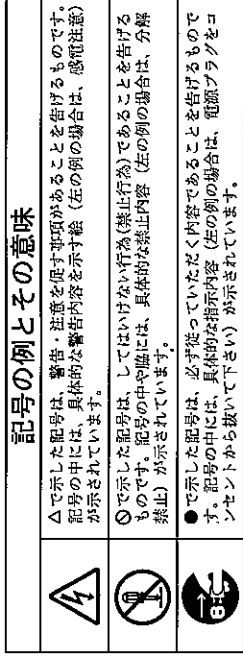 記号の例とその意味
△で示した記号は、警告・注意を促す事項があることを告げるものです。
記号の中には、具体的な警告内容を示す絵（左の例の場合は、感電注意）
が示されています。
⃠で示した記号は、してはいけない行為(禁止行為)であることを告げる
ものです。記号の中や脇には、具体的な禁止内容（左の例の場合は、分解
禁止）が示されています。
●で示した記号は、必ず従っていただく内容であることを告げるもので
す。記号の中には、具体的な指示内容（左の例の場合は、電源プラグをコ
ンセントから抜いて下さい）が示されています。